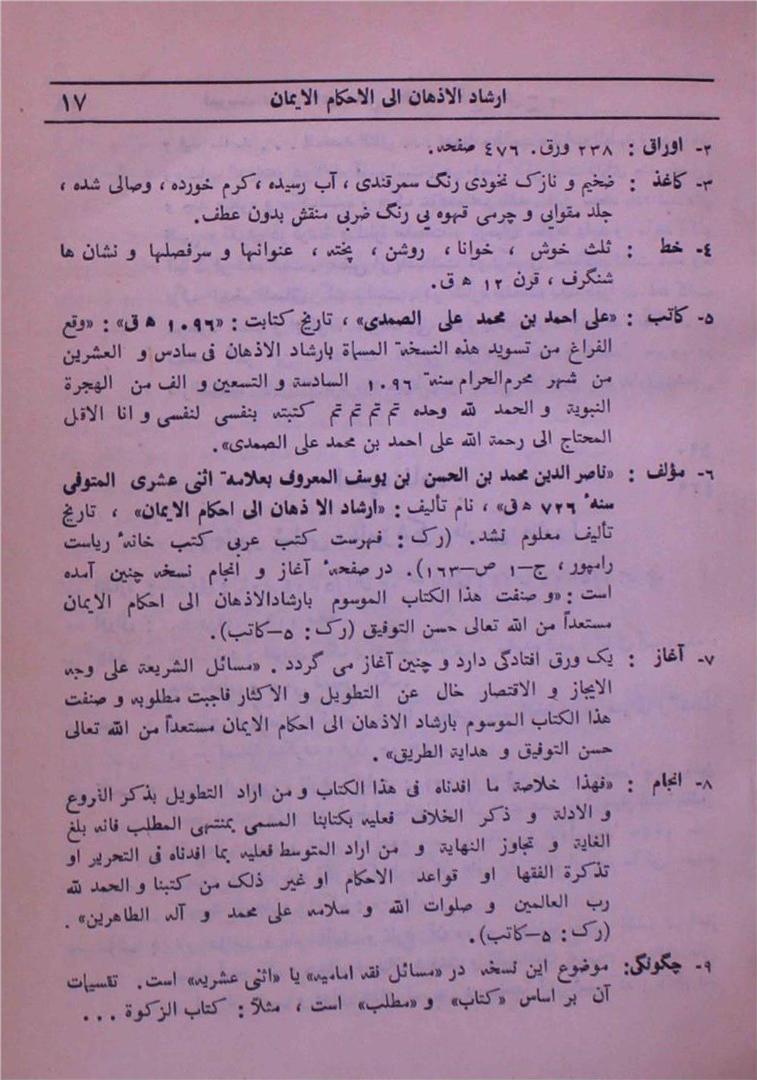 ارشاد الاذهان الی الاحکام الایمان
۱۷
۲- اوراق : ۲۳۸ ورق. ۴۷۶ صفحه.
۳- کاغذ : ضخیم و نازک نخودی رنگ سمرقندی ، آب رسیده ،کرم خورده ، وصالی شده ،
جلد مقوایی و چرمی قهوه یی رنگ ضربی منقش بدون عطف.
۴- خط : ثلث خوش ، خوانا ، روشن ، پخته ، عنوانها و سرفصلها و نشان ها
شنگرف ، قرن ۱۲ ه ق.
۵- کاتب : «علی احمد بن محمد علی الصمدی» ، تاریخ کتابت : «۱۰۹۶ ه ق» : «وقع
الفراغ من تسوید هذه النسخة المسماة بارشاد الاذهان فی سادس و العشرین
من شهر محرم الحرام سنة ۱۰۹۶ السادسة و التسعین و الف من الهجرة
النبویة و الحمد لله وحده تم تم تم تم کتبته بنفسی لنفسی و انا الاقل
المحتاج الی رحمة الله علی احمد بن محمد علی الصمدی».
۶- مؤلف : «ناصر الدین محمد بن الحسن بن یوسف المعروف بعلامهٔ اثنی عشری المتوفی
سنهٔ ۷۲۶ ه ق» ، نام تألیف : «ارشاد الا ذهان الی احکام الایمان» ، تاریخ
تألیف معلوم نشد. (رک : فهرست کتب عربی کتب خانهٔ ریاست
رامپور ، ج-۱ ص-۱۶۳). در صفحهٔ آغاز و انجام نسخه چنین آمده
است : «و صنفت هذا الکتاب الموسوم بارشادالاذهان الی احکام الایمان
مستعداً من الله تعالی حسن التوفیق (رک : ۵-کاتب).
۷- آغاز : یک ورق افتادگی دارد و چنین آغاز می گردد . «مسائل الشریعة علی وجه
الایجاز و الاقتصار خال عن التطویل و الاکثار فاجبت مطلوبه و صنفت
هذا الکتاب الموسوم بارشاد الاذهان الی احکام الایمان مستعداً من الله تعالی
حسن التوفیق و هدایة الطریق» .
۸- انجام : «فهذا خلاصة ما افدناه فی هذا الکتاب و من اراد التطویل بذکر الفروع
و الادلة و ذکر الخلاف فعلیه بکتابنا المسمی بمنتهی المطلب فانه بلغ
الغایة و تجاوز النهایة و من اراد المتوسط فعلیه بما افدناه فی التحریر او
تذکرة الفقها او قواعد الاحکام او غیر ذلک من کتبنا و الحمد لله
رب العالمین و صلوات الله و سلامه علی محمد و آله الطاهرین» .
(رک : ۵-کاتب).
۹- چگونگی: موضوع این نسخه در «مسائل فقه امامیه» یا «اثنی عشریه» است. تقسیمات
آن بر اساس «کتاب» و «مطلب» است ، مثلاً : کتاب الزکوة ...